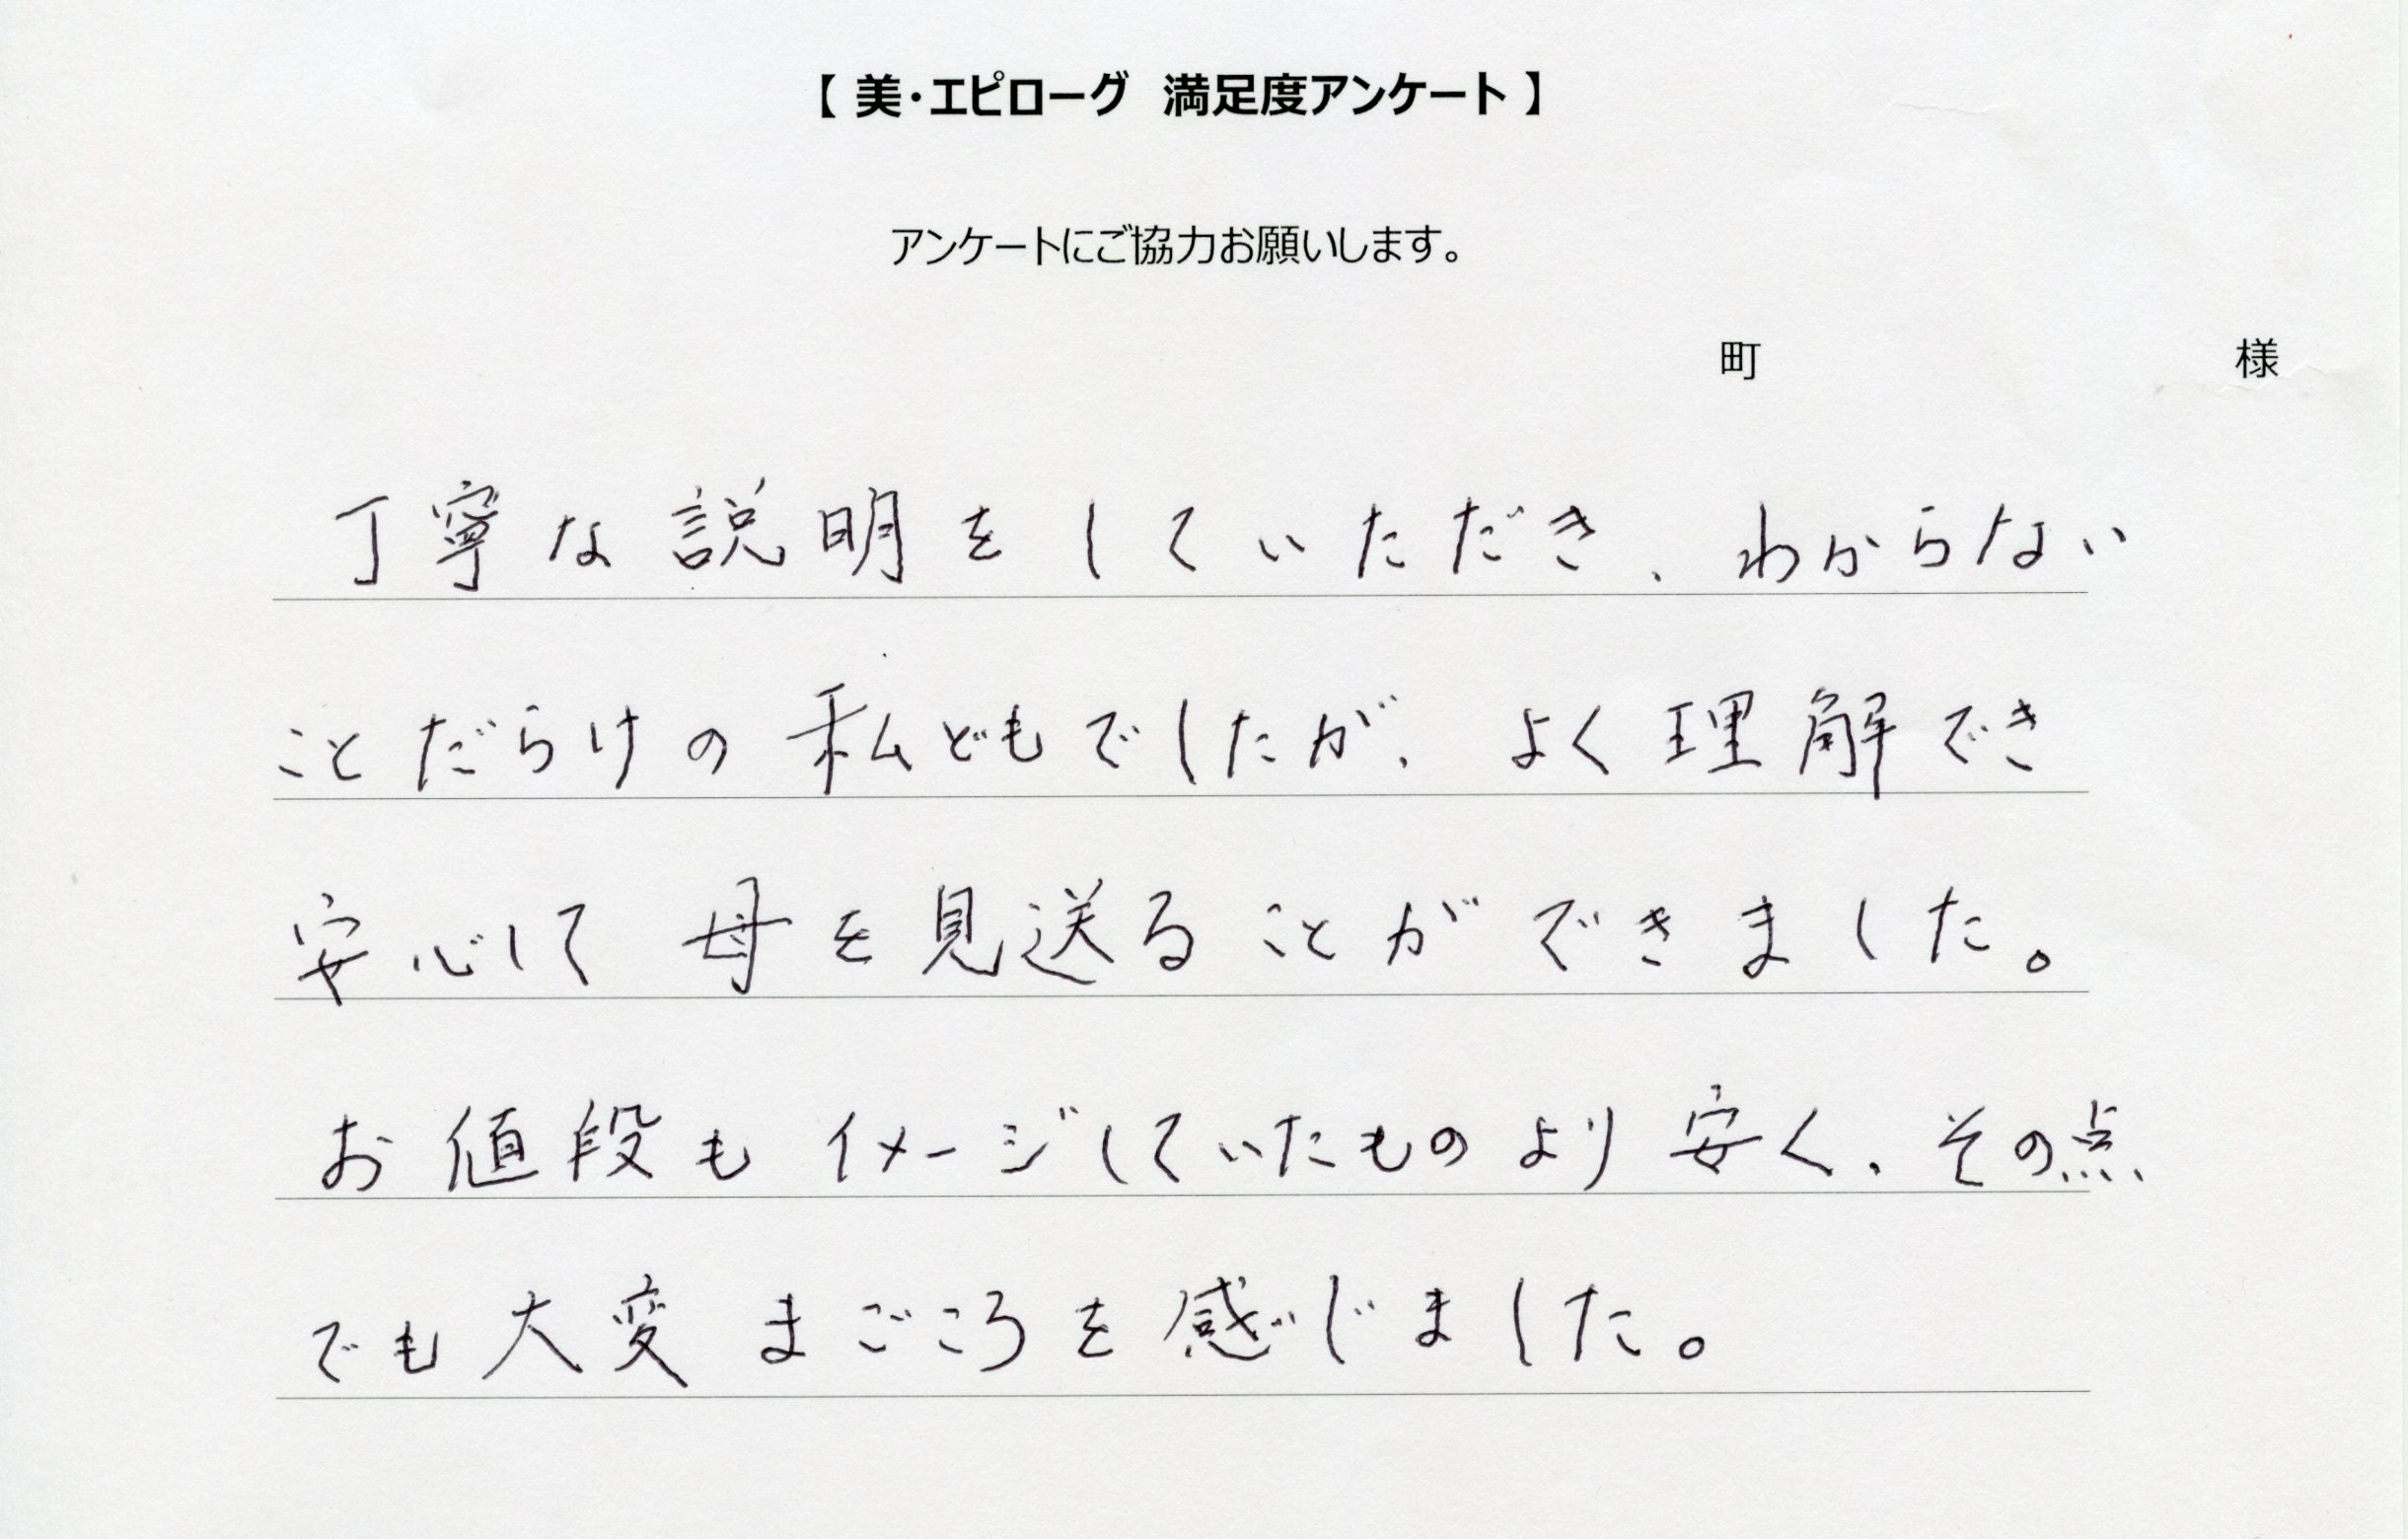 【 美・エピローグ 満足度アンケート 】
アンケートにご協力お願いします。
町 様
丁寧な説明をしていただき、わからない
ことだらけの私どもでしたが、よく理解でき
安心して母を見送ることができました。
お値段もイメージしていたものより安く、その点
でも大変まごころを感じました。